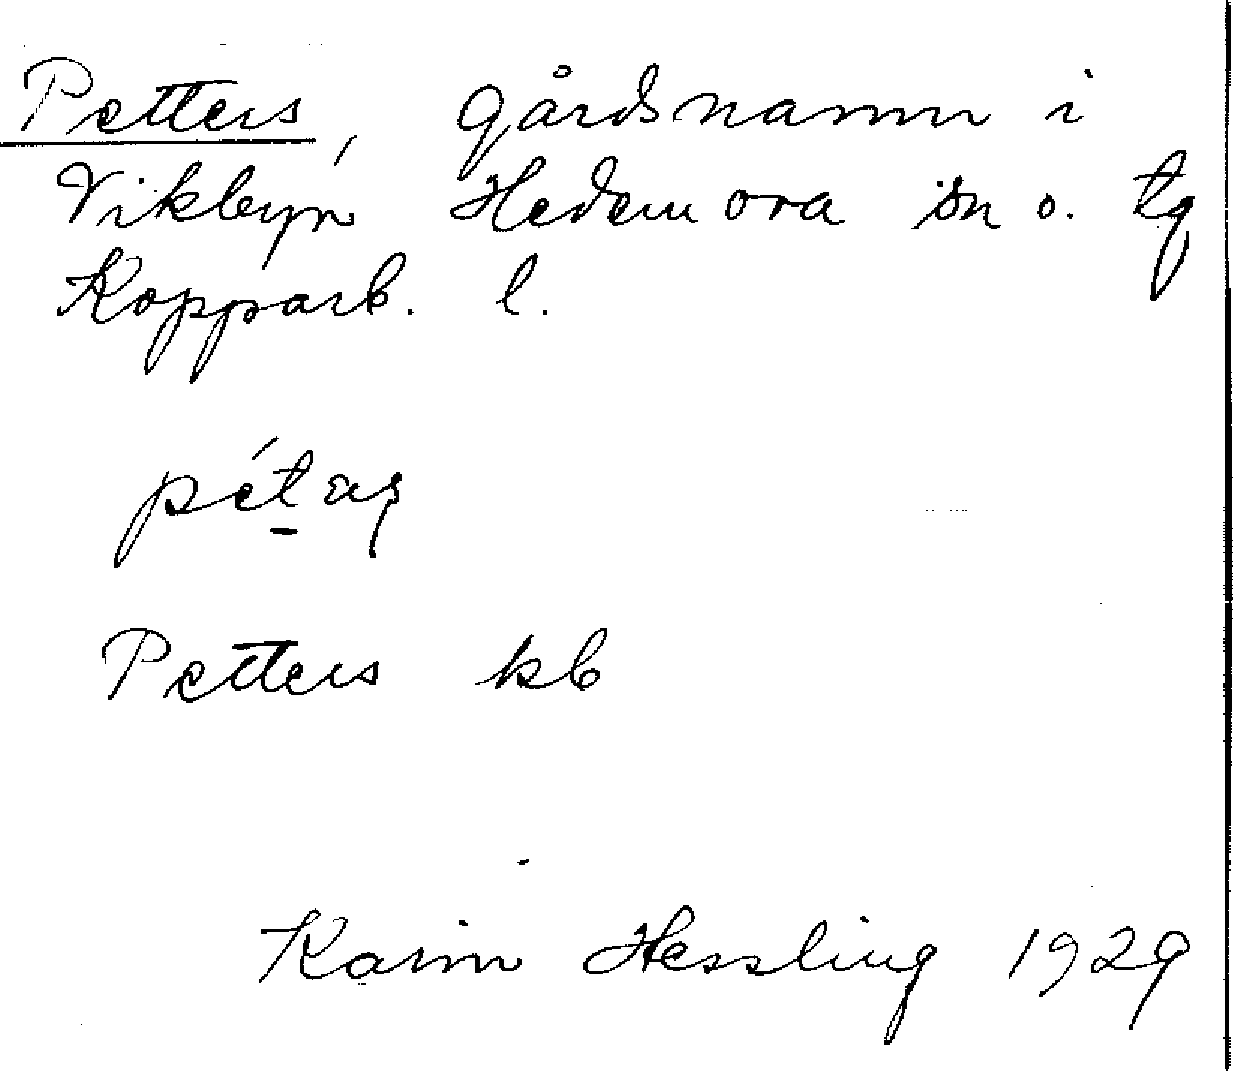 Petters, gårdsnamn i
Vikbyn Hedemora sn o. tg
Kopparb. l.
Petters kb
Karin Hessling 1929